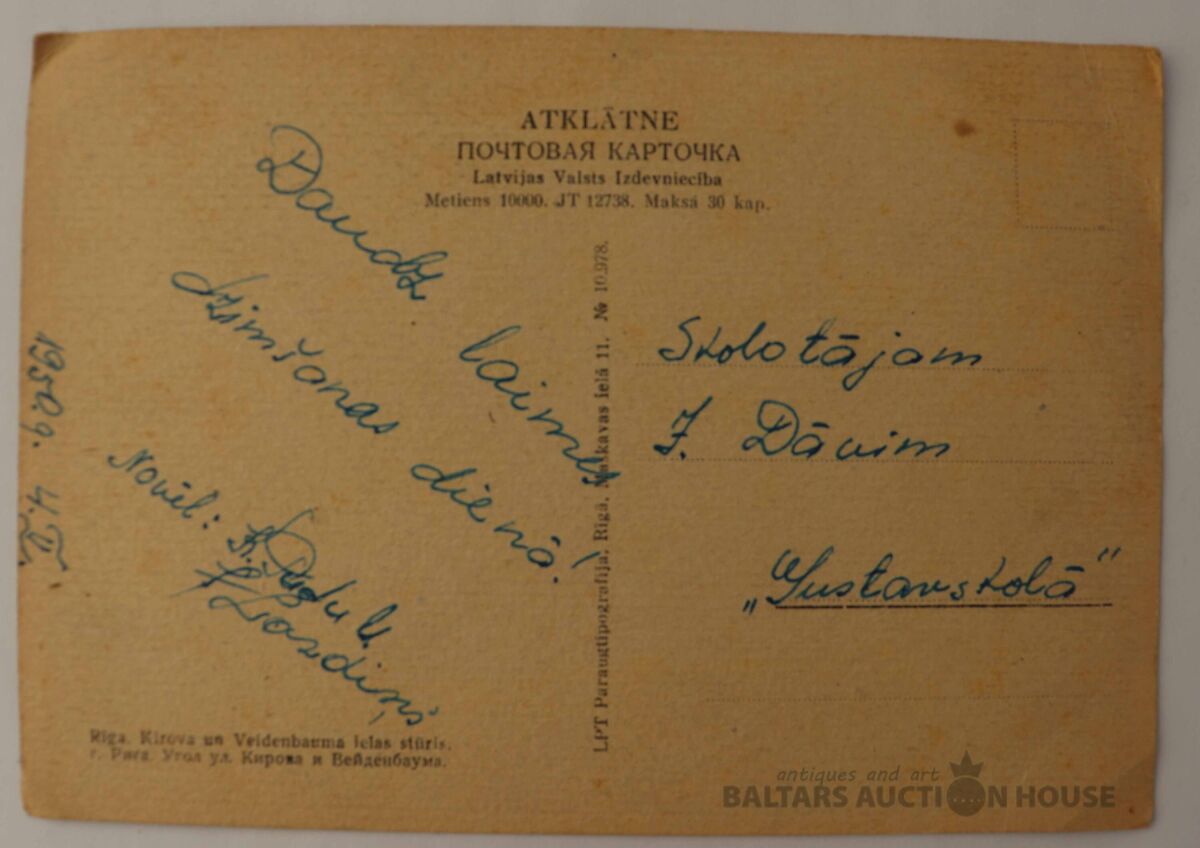 ATKLĀTNE
ПОЧТОВАЯ КАРТОЧКА
Latvijas Valsts Izdevniecība
Metiens 10000. JT 12738. Maksā 30 kap.
Daudz laimes
dzimšanas dienā!
Novēl:
Lazdiņš
1950.g. 4.II.
Rīga. Kirova un Veidenbauma ielas stūris.
г. Рига. Угол ул. Кирова и Вейденбаума.
LPT Paraugtipografija, Rīgā, Maskavas ielā 11. № 10.978.
Skolotājam
J. Dāvim
„Gustavskolā"
antiques and art
BALTARS AUCTION HOUSE